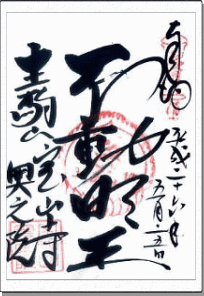 奉拝
平成二十六年
五月二五日
不動明王
生駒山宝山寺
奥之院